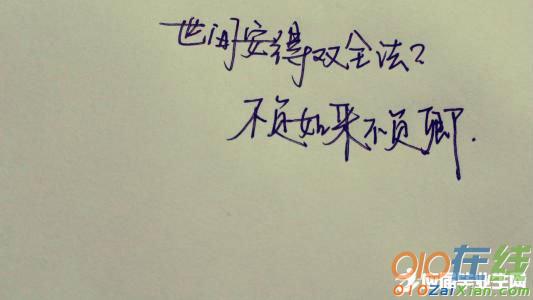 世间安得双全法?
不负如来不负卿.
010在线
010ZaiXian.com
毕业生网